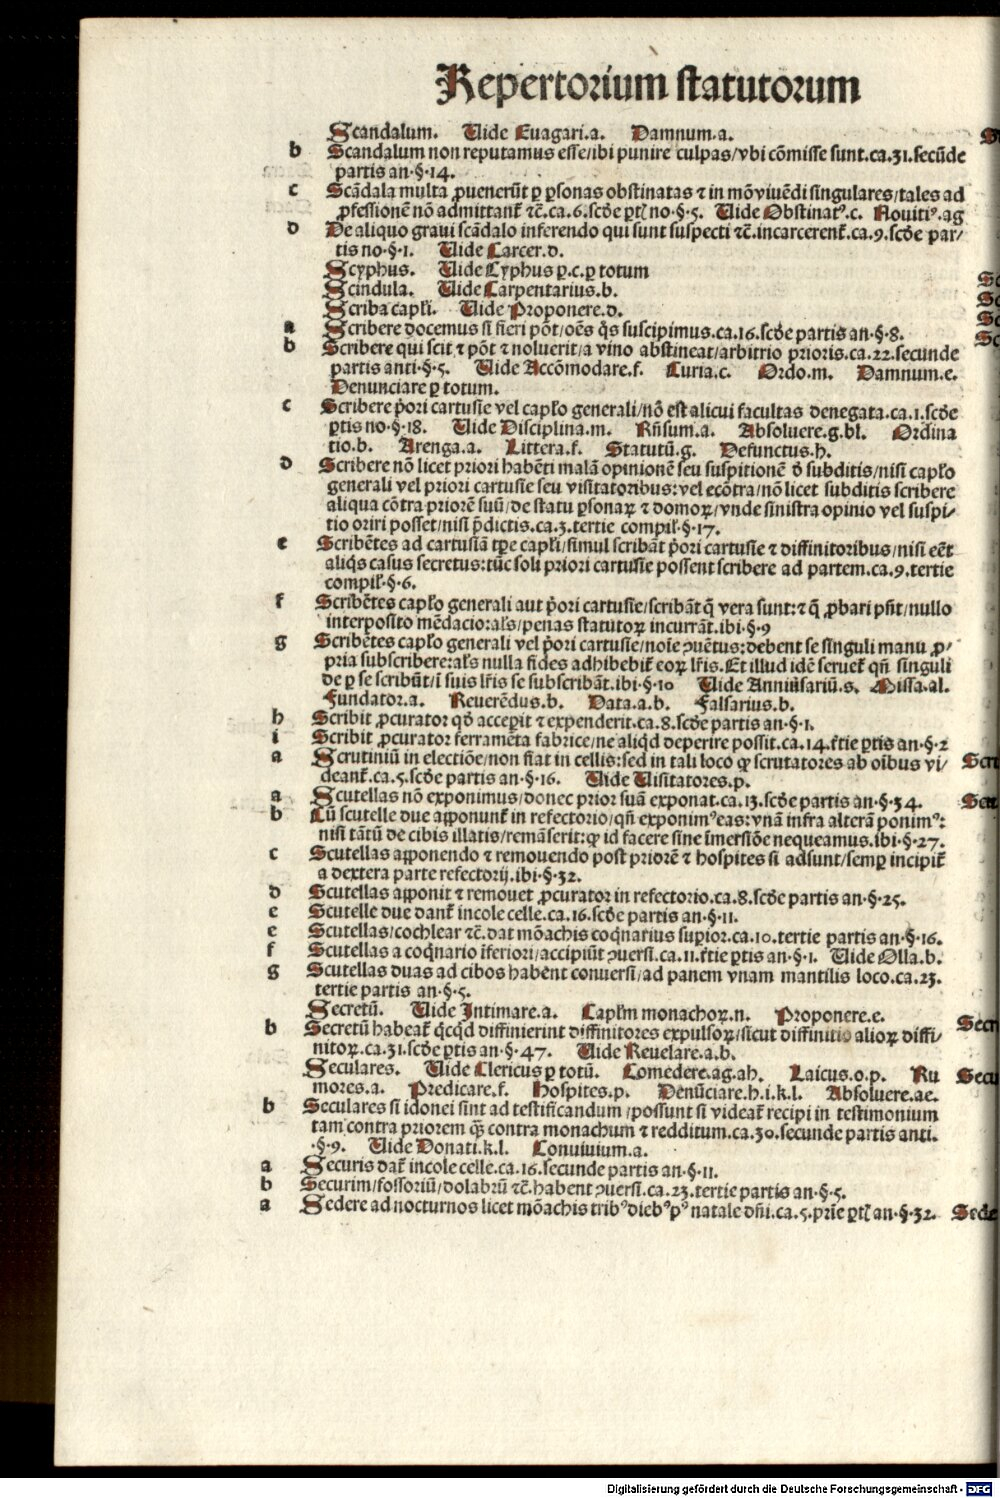 Repertorium statutorum
Scandalum. Uide Euagari.a. Damnum.a.
b Scandalum non reputamus esse/ibi punire culpas/vbi cōmisse sunt.ca.31.secūde
partis an·§·14.
c Scādala multa ꝓuenerūt ꝑ ꝑsonas obstinatas ⁊ in mō viuēdi singulares/tales ad
ꝓfessionē nō admittant᷒ ⁊c̄.ca.6.scd̄e ꝑtꝭ no·§·5. Uide Obstinatꝰ.c. Nouitiꝰ.ag
d De aliquo graui scādalo inferendo qui sunt suspecti ⁊c̄.incarcerent᷒.ca.9.scd̄e par/
tis no·§·1. Uide Carcer.d.
Scyphus. Uide Cyphus ꝑ.c.ꝑ totum
Scindula. Uide Carpentarius.b.
Scriba capłi. Uide Proponere.d.
a Scribere docemus si fieri pōt/oēs q̄s suscipimus.ca.16.scd̄e partis an·§·8.
b Scribere qui scit ⁊ pōt ⁊ noluerit/a vino abstineat/arbitrio prioris.ca.22.secunde
partis anti·§·5. Uide Accōmodare.f. Curia.c. Ordo.m. Damnum.e.
Denunciare ꝑ totum.
c Scribere p̄ori cartusie vel capło generali/nō est alicui facultas denegata.ca.1.scd̄e
ꝑtis no·§·18. Uide Disciplina.m. Rn̄sum.a. Absoluere.g.bl. Ordina
tio.b. Arenga.a. Littera.f. Statutū.g. Defunctus.h.
d Scribere nō licet priori habēti malā opinionē seu suspitionē d̄ subditis/nisi capło
generali vel priori cartusie seu visitatoribus:vel ecōtra/nō licet subditis scribere
aliqua cōtra priorē suū/de statu ꝑsonaꝝ ⁊ domoꝝ/vnde sinistra opinio vel suspi/
tio oriri posset/nisi p̄dictis.ca.3.tertie compil᷒·§·17.
e Scribētes ad cartusiā tꝑe capłi/simul scribāt p̄ori cartusie ⁊ diffinitoribus/nisi eēt
aliq̄s casus secretus:tūc soli priori cartusie possent scribere ad partem.ca.9.tertie
compil᷒·§·6.
f Scribētes capło generali aut p̄ori cartusie/scribāt q̄ vera sunt:⁊ q̄ ꝓbari pn̄t/nullo
interposito mēdacio:als/penas statutoꝝ incurrāt.ibi·§·9
g Scribētes capło generali vel p̄ori cartusie/noīe ꝯuētus:debent se singuli manu ꝓ/
pria subscribere:als nulla fides adhibebit᷒ eoꝝ lr̄is.Et illud idē seruet᷒ qn̄ singuli
de ꝑ se scribūt/ī suis lr̄is se subscribāt.ibi·§·10 Uide Anniūsariū.s. Missa.al.
Fundator.a. Reuerēdus.b. Data.a.b. Falsarius.b.
h Scribit ꝓcurator qd̄ acceꝑit ⁊ expenderit.ca.8.scd̄e partis an·§·1.
i Scribit ꝓcurator ferramēta fabrice/ne aliqd̄ deperire possit.ca.14.t̄tie ꝑtis an·§·2
a Scrutiniū in electiōe/non fiat in cellis:sed in tali loco ꝙ scrutatores ab oībus vi/
deant᷒.ca.5.scd̄e partis an·§·16. Uide Uisitatores.p.
a Scutellas nō exponimus/donec prior suā exponat.ca.13.scd̄e partis an·§·34.
b Cū scutelle due apponunt᷒ in refectorio/qn̄ exponimꝰ eas:vnā infra alterā ponimꝰ:
nisi tātū de cibis illatis/remāserit:ꝙ id facere sine īmersiōe nequeamus.ibi·§·27.
c Scutellas apponendo ⁊ remouendo post priorē ⁊ hospites si adsunt/semꝑ incipit᷒
a dextera parte refectorij.ibi·§·32.
d Scutellas apponit ⁊ remouet ꝓcurator in refectorio.ca.8.scd̄e partis an·§·25.
e Scutelle due dant᷒ incole celle.ca.16.scd̄e partis an·§·11.
e Scutellas/cochlear ⁊c̄.dat mōachis coq̄narius suꝑior.ca.10.tertie partis an·§·16.
f Scutellas a coq̄nario īferiori/accipiūt ꝯuersi.ca.11.t̄tie ꝑtis an·§·1. Uide Olla.b.
g Scutellas duas ad cibos habent conuersi/ad panem vnam mantilis loco.ca.23.
tertie partis an·§·5.
Secretū. Uide Intimare.a. Capłm monachoꝝ.n. Proponere.e.
b Secretū habeat᷒ q̄cq̄d diffinierint diffinitores expulsoꝝ/sicut diffinitio alioꝝ diffi/
nitoꝝ.ca.31.scd̄e ꝑtis an·§·47. Uide Reuelare.a.b.
Seculares. Uide Clericus ꝑ totū. Comedere.ag.ah. Laicus.o.p. Ru
mores.a. Predicare.f. Hospites.p. Denūciare.h.i.k.l. Absoluere.ae.
b Seculares si idonei sint ad testificandum/possunt si videat᷒ recipi in testimonium
tam contra priorem q̄ꝫ contra monachum ⁊ redditum.ca.30.secunde partis anti.
·§·9. Uide Donati.k.l. Conuiuium.a.
a Securis dat᷒ incole celle.ca.16.secunde partis an·§·11.
b Securim/fossoriū/dolabrū ⁊c̄.habent ꝯuersi.ca.23.tertie partis an·§·5.
a Sedere ad nocturnos licet mōachis tribꝰ diebꝰ pꝰ natale dn̄i.ca.5.prīe ꝑtꝭ an·§·32.
Digitalisierung gefördert durch die Deutsche Forschungsgemeinschaft - DFG